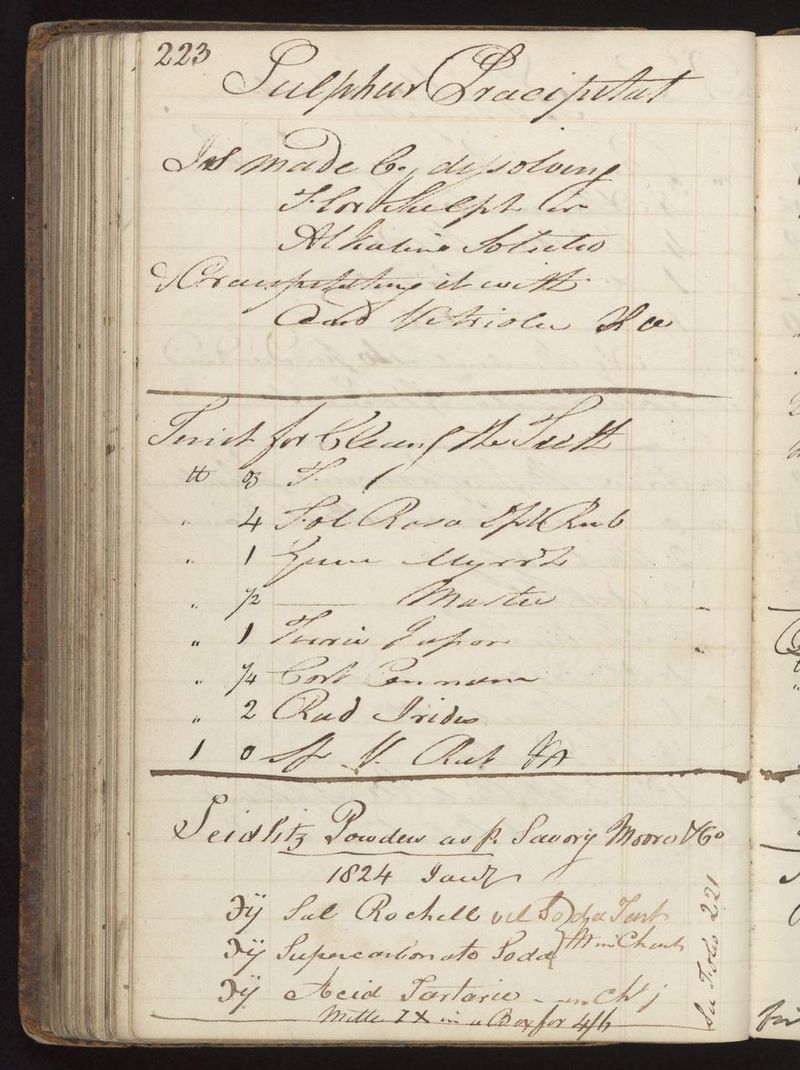 223
Sulphur Præcipitat
Is made by dissolving
Flor Sulph in
Alkaline Solutio
& Præcipitating it with
Acid Vitriolic &c
Tinct for Cleang the Teeth
℔ ℥ T.
" 4 Fol Rosa Rub
" 1 Gum Myrrh
" ½ —— Mastic
" 1 Terra Japon
" ¼ Cort Cinnam
" 2 Rad Iridis
1 0 Sp V. Rect
Seidlitz Powders as p. Savory Moore & Co
1824 Jany
ʒij Sal Rochell vel Soda Tart
ʒij Supercarbonate Soda } M in Chart
ʒij Acid Tartaric - in Ch j
Mitte IX in a Box for 4/6
See Folio 221